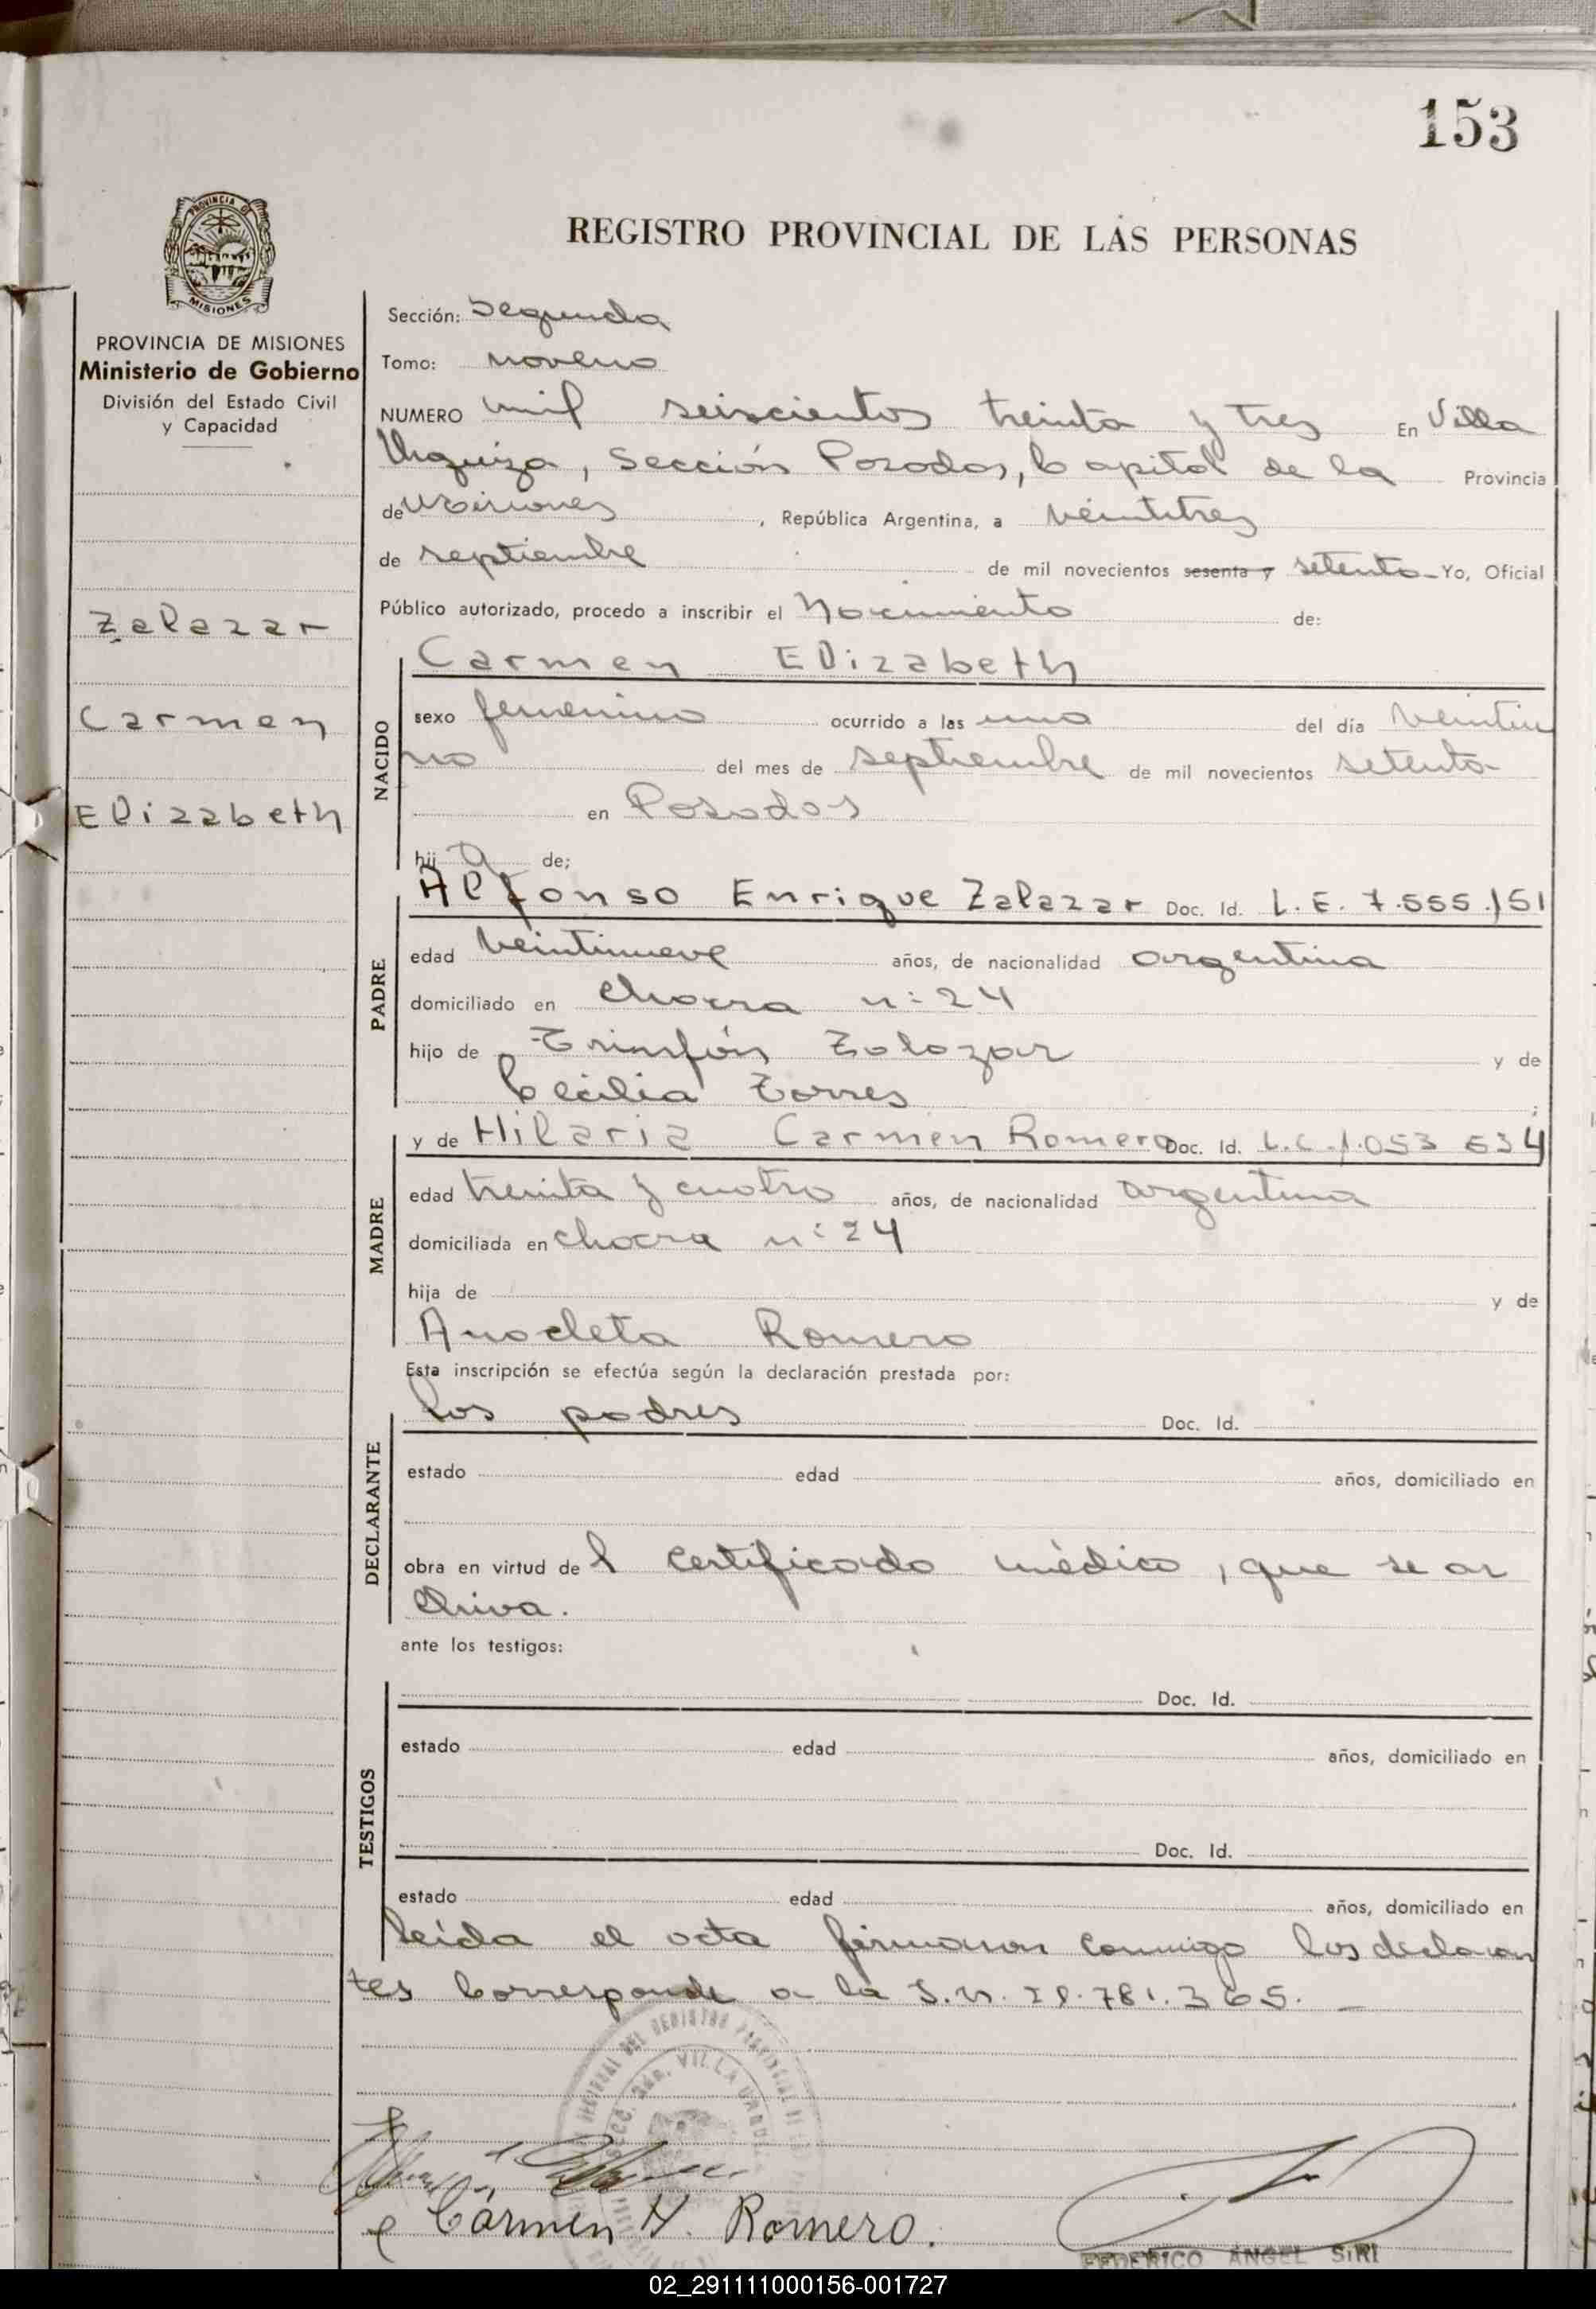 153
REGISTRO PROVINCIAL DE LAS PERSONAS
PROVINCIA DE
MISIONES
PROVINCIA DE MISIONES
Ministerio de Gobierno
División del Estado Civil
y Capacidad
Zalazar
Carmen
Elizabeth
Sección: Segunda
Tomo: noveno
NUMERO mil seiscientos treinta y tres En Villa
Urquiza, Sección Posadas, Capital de la Provincia
de Misiones, República Argentina, a veintitres
de septiembre de mil novecientos sesenta y setenta-Yo, Oficial
Público autorizado, procedo a inscribir el Nacimiento de:
Carmen Elizabeth
NACIDO
sexo femenino ocurrido a las una del día veintiu
no del mes de septiembre de mil novecientos setenta-
en Posadas
hij a de;
PADRE
Alfonso Enrique Zalazar Doc. Id. L. E. 7.555.151
edad veintinueve años, de nacionalidad argentina
domiciliado en chacra n: 24
hijo de Zalazar y de
Cecilia Torres ;
MADRE
y de Hilaria Carmen Romero Doc. Id. L.C. 1.053 634
edad treinta y cuatro años, de nacionalidad argentina
domiciliada en chacra n: 24
hija de y de
Anacleta Romero
Esta inscripción se efectúa según la declaración prestada por:
DECLARANTE
los padres Doc. Id.
estado edad años, domiciliado en
obra en virtud de l certificado médico, que se ar
chiva.
ante los testigos:
TESTIGOS
Doc. Id.
estado edad años, domiciliado en
Doc. Id.
estado edad años, domiciliado en
leída el acta firmaron conmigo los declaran
tes Corresponde a la 781.365. -
Carmen H. Romero.
FEDERICO ANGEL SIRI
02_291111000156-001727